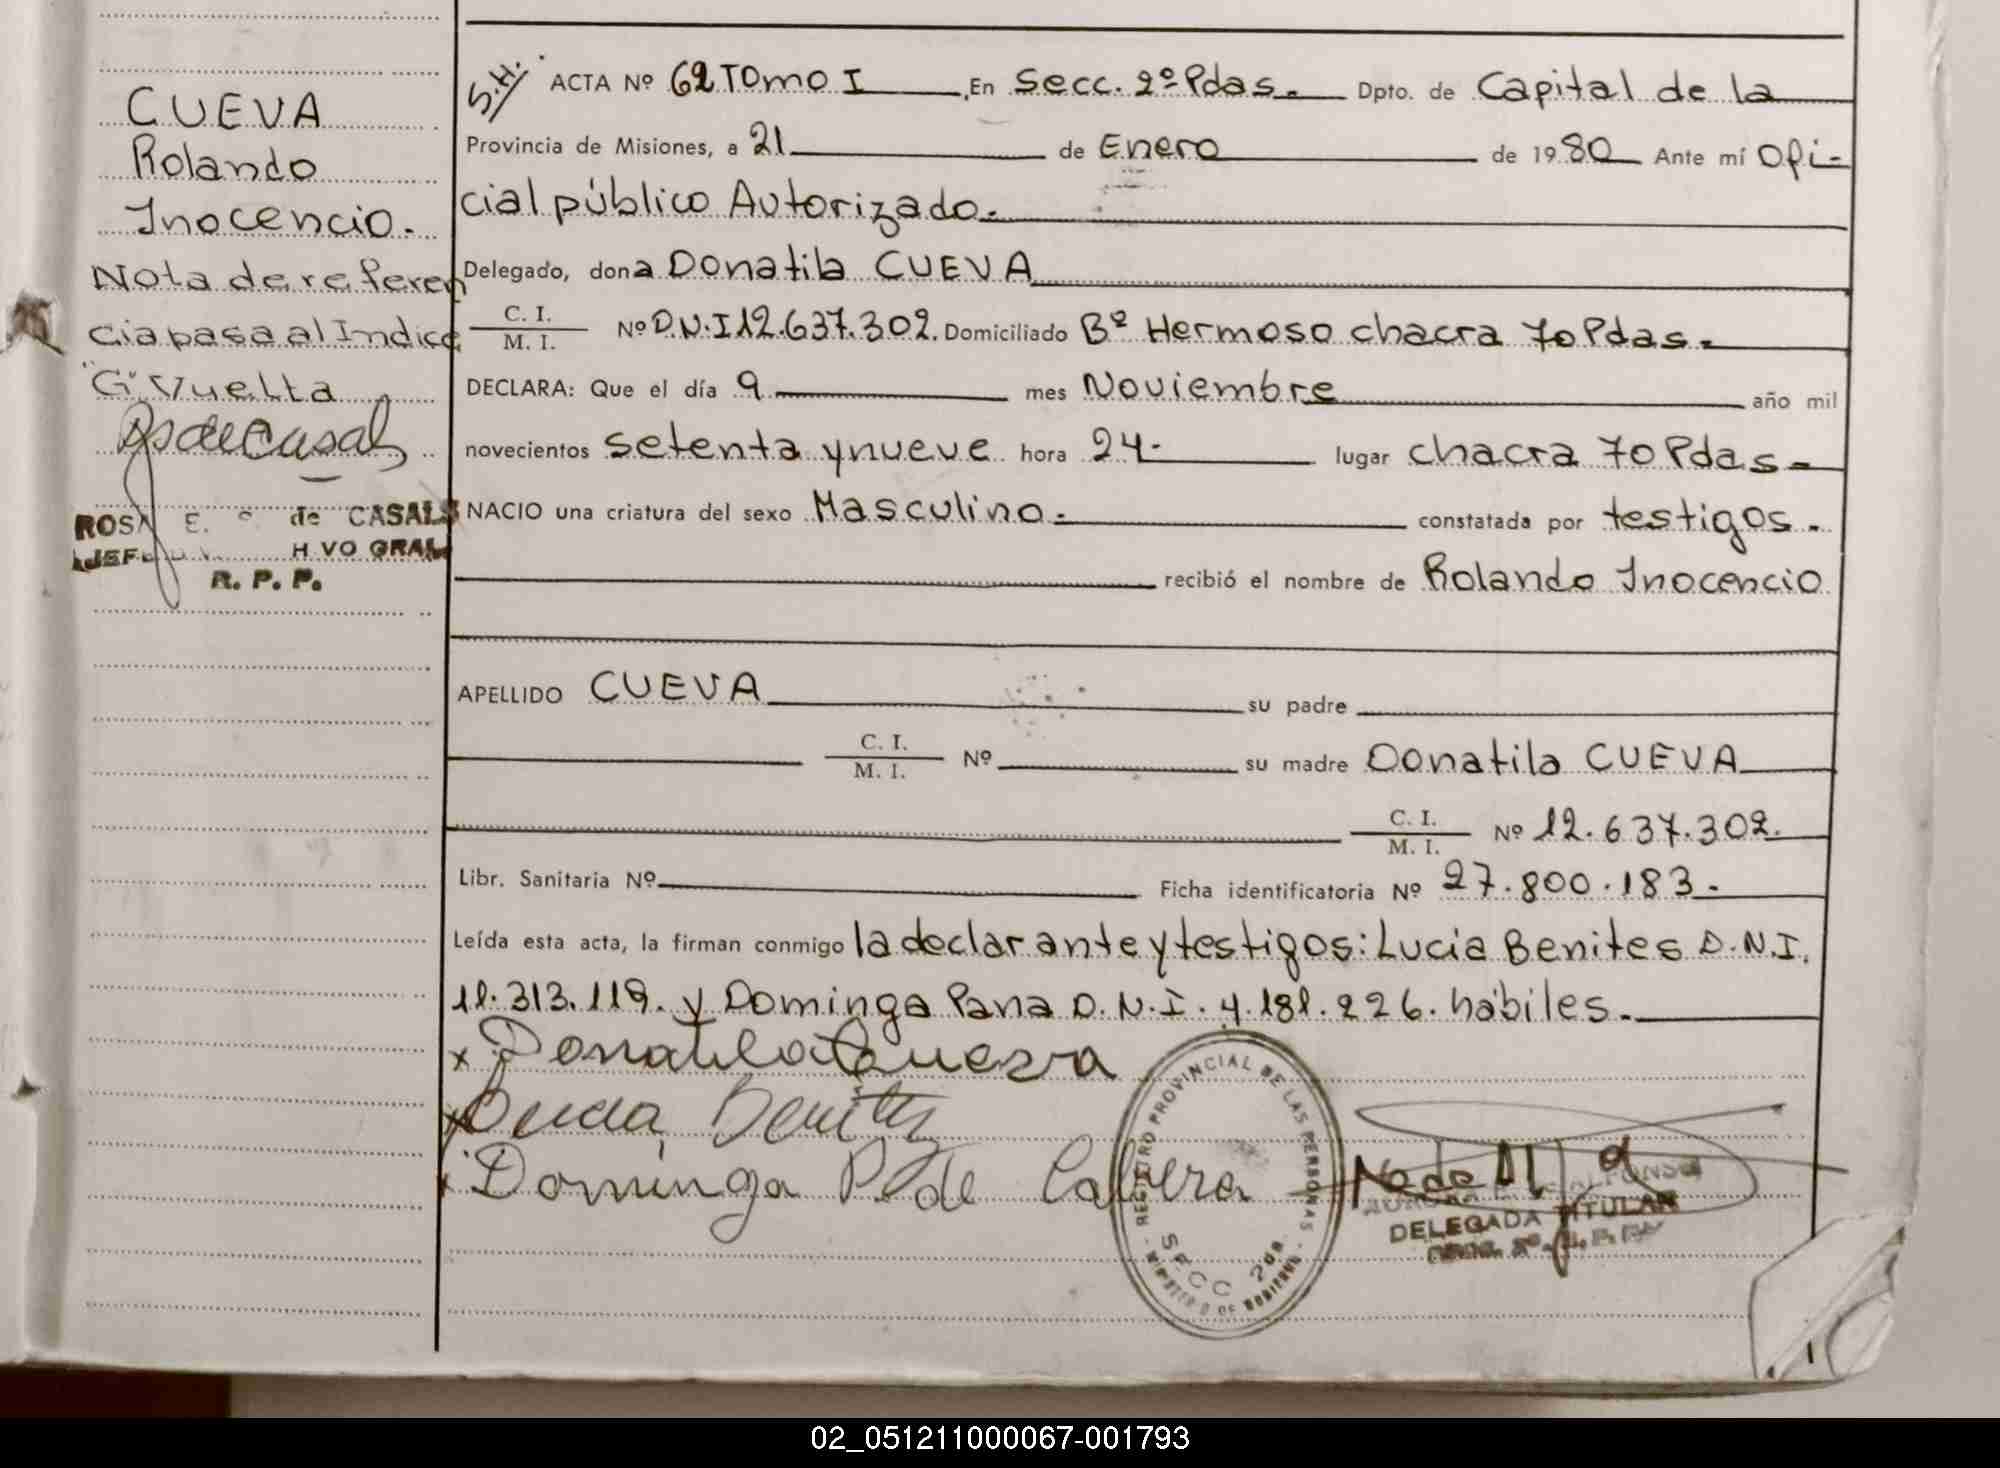 CUEVA
Rolando
Inocencio.
Nota de referen
cia pasa al Indice
"G" Vuelta
ROSA E. de CASALS
R. P. P.
S.H. ACTA Nº 62 Tomo I En Secc. 2º Pdas. Dpto. de Capital de la
Provincia de Misiones, a 21 de Enero de 1980 Ante mí Ofi-
cial público Autorizado.
Delegado, dona Donatila CUEVA
C. I.
M. I. Nº D.N.I 12.637.302. Domiciliado Bº Hermoso chacra 70 Pdas.
DECLARA: Que el día 9 mes Noviembre año mil
novecientos setenta y nueve hora 24. lugar chacra 70 Pdas.
NACIO una criatura del sexo Masculino. constatada por testigos.
recibió el nombre de Rolando Inocencio
APELLIDO CUEVA su padre
C. I.
M. I. Nº su madre Donatila CUEVA
C. I.
M. I. Nº 12.637.302.
Libr. Sanitaria Nº Ficha identificatoria Nº 27.800.183.
Leída esta acta, la firman conmigo la declarante y testigos: Lucia Benites D.N.I.
11.313.119. y Dominga Pana D.N.I. 4.181.226. hábiles.
x Donatila Cueva
x Lucia Benites
x Dominga P. de Cabrera
REGISTRO PROVINCIAL DE LAS PERSONAS
SECC 2da
DELEGADA TITULAR
02_051211000067-001793